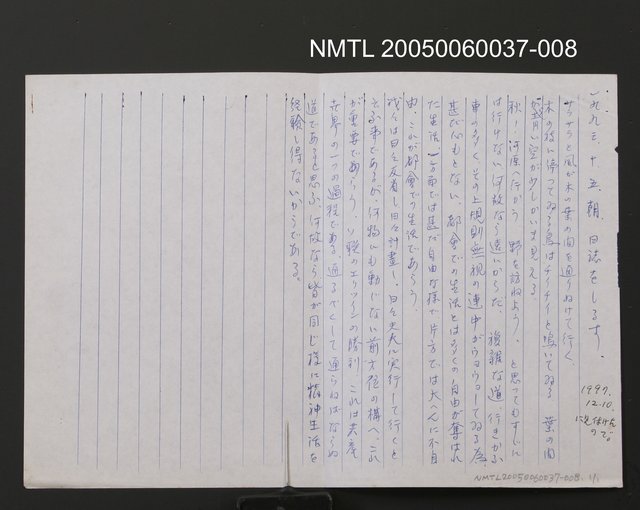 NMTL 20050060037-008
一九九三、十、五、朝、日誌をしるす、
サラサラと風が木の葉の間を通りぬけて行く、
木の枝に停ってゐる鳥はチイチイと鳴いてゐる 葉の間
空が少しかいま見える
秋！河原へ行かう、野を訪ねよう、と思ってもすぐに
は行けない何故なら遠いからだ、複雑な道、行きかふ
車の多く、その上規則無視の連中がウヨウヨしてゐる為
甚だ心もとない、都會での生活とは多くの自由が奪はれ
た生活、一方面では甚だ自由な様で片方では大へんに不自
由、これが都會での生活であらう、
我々は日々反省し日々計畫し、日々丈夫に実行して行くと
云ふ事であるが、何物にも動じない前方程の構へ、これ
が重要であらう、ソ聯のエリツインの勝利、これは共産
世界の一つの過程である、通るべくして通らねばならぬ
道であると思ふ、何故なら皆が同じ様に精神生活を
経験し得ないからである。
1997.
12.10.
に見付けた
ので。
NMTL20050060037-008 1/1